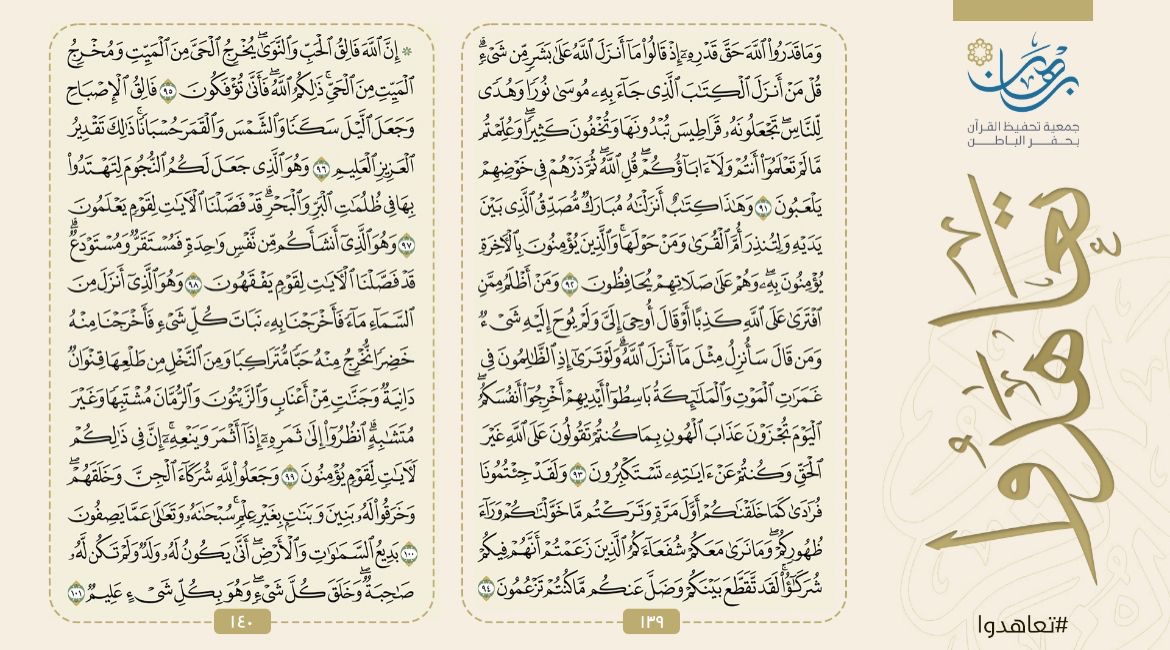 برهان
جمعية تحفيظ القرآن
بحفر الباطن
تعاهدوا
#تعاهدوا
وَمَا قَدَرُوا۟ ٱللَّهَ حَقَّ قَدْرِهِۦٓ إِذْ قَالُوا۟ مَآ أَنزَلَ ٱللَّهُ عَلَىٰ بَشَرٍ مِّن شَىْءٍۗ
قُلْ مَنْ أَنزَلَ ٱلْكِتَـٰبَ ٱلَّذِى جَآءَ بِهِۦ مُوسَىٰ نُورًا وَهُدًى
لِّلنَّاسِۖ تَجْعَلُونَهُۥ قَرَاطِيسَ تُبْدُونَهَا وَتُخْفُونَ كَثِيرًاۖ وَعُلِّمْتُم
مَّا لَمْ تَعْلَمُوٓا۟ أَنتُمْ وَلَآ ءَابَآؤُكُمْۖ قُلِ ٱللَّهُۖ ثُمَّ ذَرْهُمْ فِى خَوْضِهِمْ
يَلْعَبُونَ ٩١ وَهَـٰذَا كِتَـٰبٌ أَنزَلْنَـٰهُ مُبَارَكٌ مُّصَدِّقُ ٱلَّذِى بَيْنَ
يَدَيْهِ وَلِتُنذِرَ أُمَّ ٱلْقُرَىٰ وَمَنْ حَوْلَهَاۚ وَٱلَّذِينَ يُؤْمِنُونَ بِٱلْـَٔاخِرَةِ
يُؤْمِنُونَ بِهِۦۖ وَهُمْ عَلَىٰ صَلَاتِهِمْ يُحَافِظُونَ ٩٢ وَمَنْ أَظْلَمُ مِمَّنِ
ٱفْتَرَىٰ عَلَى ٱللَّهِ كَذِبًا أَوْ قَالَ أُوحِىَ إِلَىَّ وَلَمْ يُوحَ إِلَيْهِ شَىْءٌ
وَمَن قَالَ سَأُنزِلُ مِثْلَ مَآ أَنزَلَ ٱللَّهُۗ وَلَوْ تَرَىٰٓ إِذِ ٱلظَّـٰلِمُونَ فِى
غَمَرَٰتِ ٱلْمَوْتِ وَٱلْمَلَـٰٓئِكَةُ بَاسِطُوٓا۟ أَيْدِيهِمْ أَخْرِجُوٓا۟ أَنفُسَكُمُۖ
ٱلْيَوْمَ تُجْزَوْنَ عَذَابَ ٱلْهُونِ بِمَا كُنتُمْ تَقُولُونَ عَلَى ٱللَّهِ غَيْرَ
ٱلْحَقِّ وَكُنتُمْ عَنْ ءَايَـٰتِهِۦ تَسْتَكْبِرُونَ ٩٣ وَلَقَدْ جِئْتُمُونَا
فُرَٰدَىٰ كَمَا خَلَقْنَـٰكُمْ أَوَّلَ مَرَّةٍ وَتَرَكْتُم مَّا خَوَّلْنَـٰكُمْ وَرَآءَ
ظُهُورِكُمْۖ وَمَا نَرَىٰ مَعَكُمْ شُفَعَآءَكُمُ ٱلَّذِينَ زَعَمْتُمْ أَنَّهُمْ فِيكُمْ
شُرَكَـٰٓؤُا۟ۚ لَقَد تَّقَطَّعَ بَيْنَكُمْ وَضَلَّ عَنكُم مَّا كُنتُمْ تَزْعُمُونَ ٩٤
١٣٩
۞ إِنَّ ٱللَّهَ فَالِقُ ٱلْحَبِّ وَٱلنَّوَىٰۖ يُخْرِجُ ٱلْحَىَّ مِنَ ٱلْمَيِّتِ وَمُخْرِجُ
ٱلْمَيِّتِ مِنَ ٱلْحَىِّۚ ذَٰلِكُمُ ٱللَّهُۖ فَأَنَّىٰ تُؤْفَكُونَ ٩٥ فَالِقُ ٱلْإِصْبَاحِ
وَجَعَلَ ٱلَّيْلَ سَكَنًا وَٱلشَّمْسَ وَٱلْقَمَرَ حُسْبَانًاۚ ذَٰلِكَ تَقْدِيرُ
ٱلْعَزِيزِ ٱلْعَلِيمِ ٩٦ وَهُوَ ٱلَّذِى جَعَلَ لَكُمُ ٱلنُّجُومَ لِتَهْتَدُوا۟
بِهَا فِى ظُلُمَـٰتِ ٱلْبَرِّ وَٱلْبَحْرِۗ قَدْ فَصَّلْنَا ٱلْـَٔايَـٰتِ لِقَوْمٍ يَعْلَمُونَ
٩٧ وَهُوَ ٱلَّذِىٓ أَنشَأَكُم مِّن نَّفْسٍ وَٰحِدَةٍ فَمُسْتَقَرٌّ وَمُسْتَوْدَعٌۗ
قَدْ فَصَّلْنَا ٱلْـَٔايَـٰتِ لِقَوْمٍ يَفْقَهُونَ ٩٨ وَهُوَ ٱلَّذِىٓ أَنزَلَ مِنَ
ٱلسَّمَآءِ مَآءً فَأَخْرَجْنَا بِهِۦ نَبَاتَ كُلِّ شَىْءٍ فَأَخْرَجْنَا مِنْهُ
خَضِرًا نُّخْرِجُ مِنْهُ حَبًّا مُّتَرَاكِبًا وَمِنَ ٱلنَّخْلِ مِن طَلْعِهَا قِنْوَانٌ
دَانِيَةٌ وَجَنَّـٰتٍ مِّنْ أَعْنَابٍ وَٱلزَّيْتُونَ وَٱلرُّمَّانَ مُشْتَبِهًا وَغَيْرَ
مُتَشَـٰبِهٍۗ ٱنظُرُوٓا۟ إِلَىٰ ثَمَرِهِۦٓ إِذَآ أَثْمَرَ وَيَنْعِهِۦٓۚ إِنَّ فِى ذَٰلِكُمْ
لَـَٔايَـٰتٍ لِّقَوْمٍ يُؤْمِنُونَ ٩٩ وَجَعَلُوا۟ لِلَّهِ شُرَكَآءَ ٱلْجِنَّ وَخَلَقَهُمْۖ
وَخَرَقُوا۟ لَهُۥ بَنِينَ وَبَنَـٰتٍۭ بِغَيْرِ عِلْمٍۚ سُبْحَـٰنَهُۥ وَتَعَـٰلَىٰ عَمَّا يَصِفُونَ
١٠٠ بَدِيعُ ٱلسَّمَـٰوَٰتِ وَٱلْأَرْضِۖ أَنَّىٰ يَكُونُ لَهُۥ وَلَدٌ وَلَمْ تَكُن لَّهُۥ
صَـٰحِبَةٌۖ وَخَلَقَ كُلَّ شَىْءٍۖ وَهُوَ بِكُلِّ شَىْءٍ عَلِيمٌ ١٠١
١٤٠